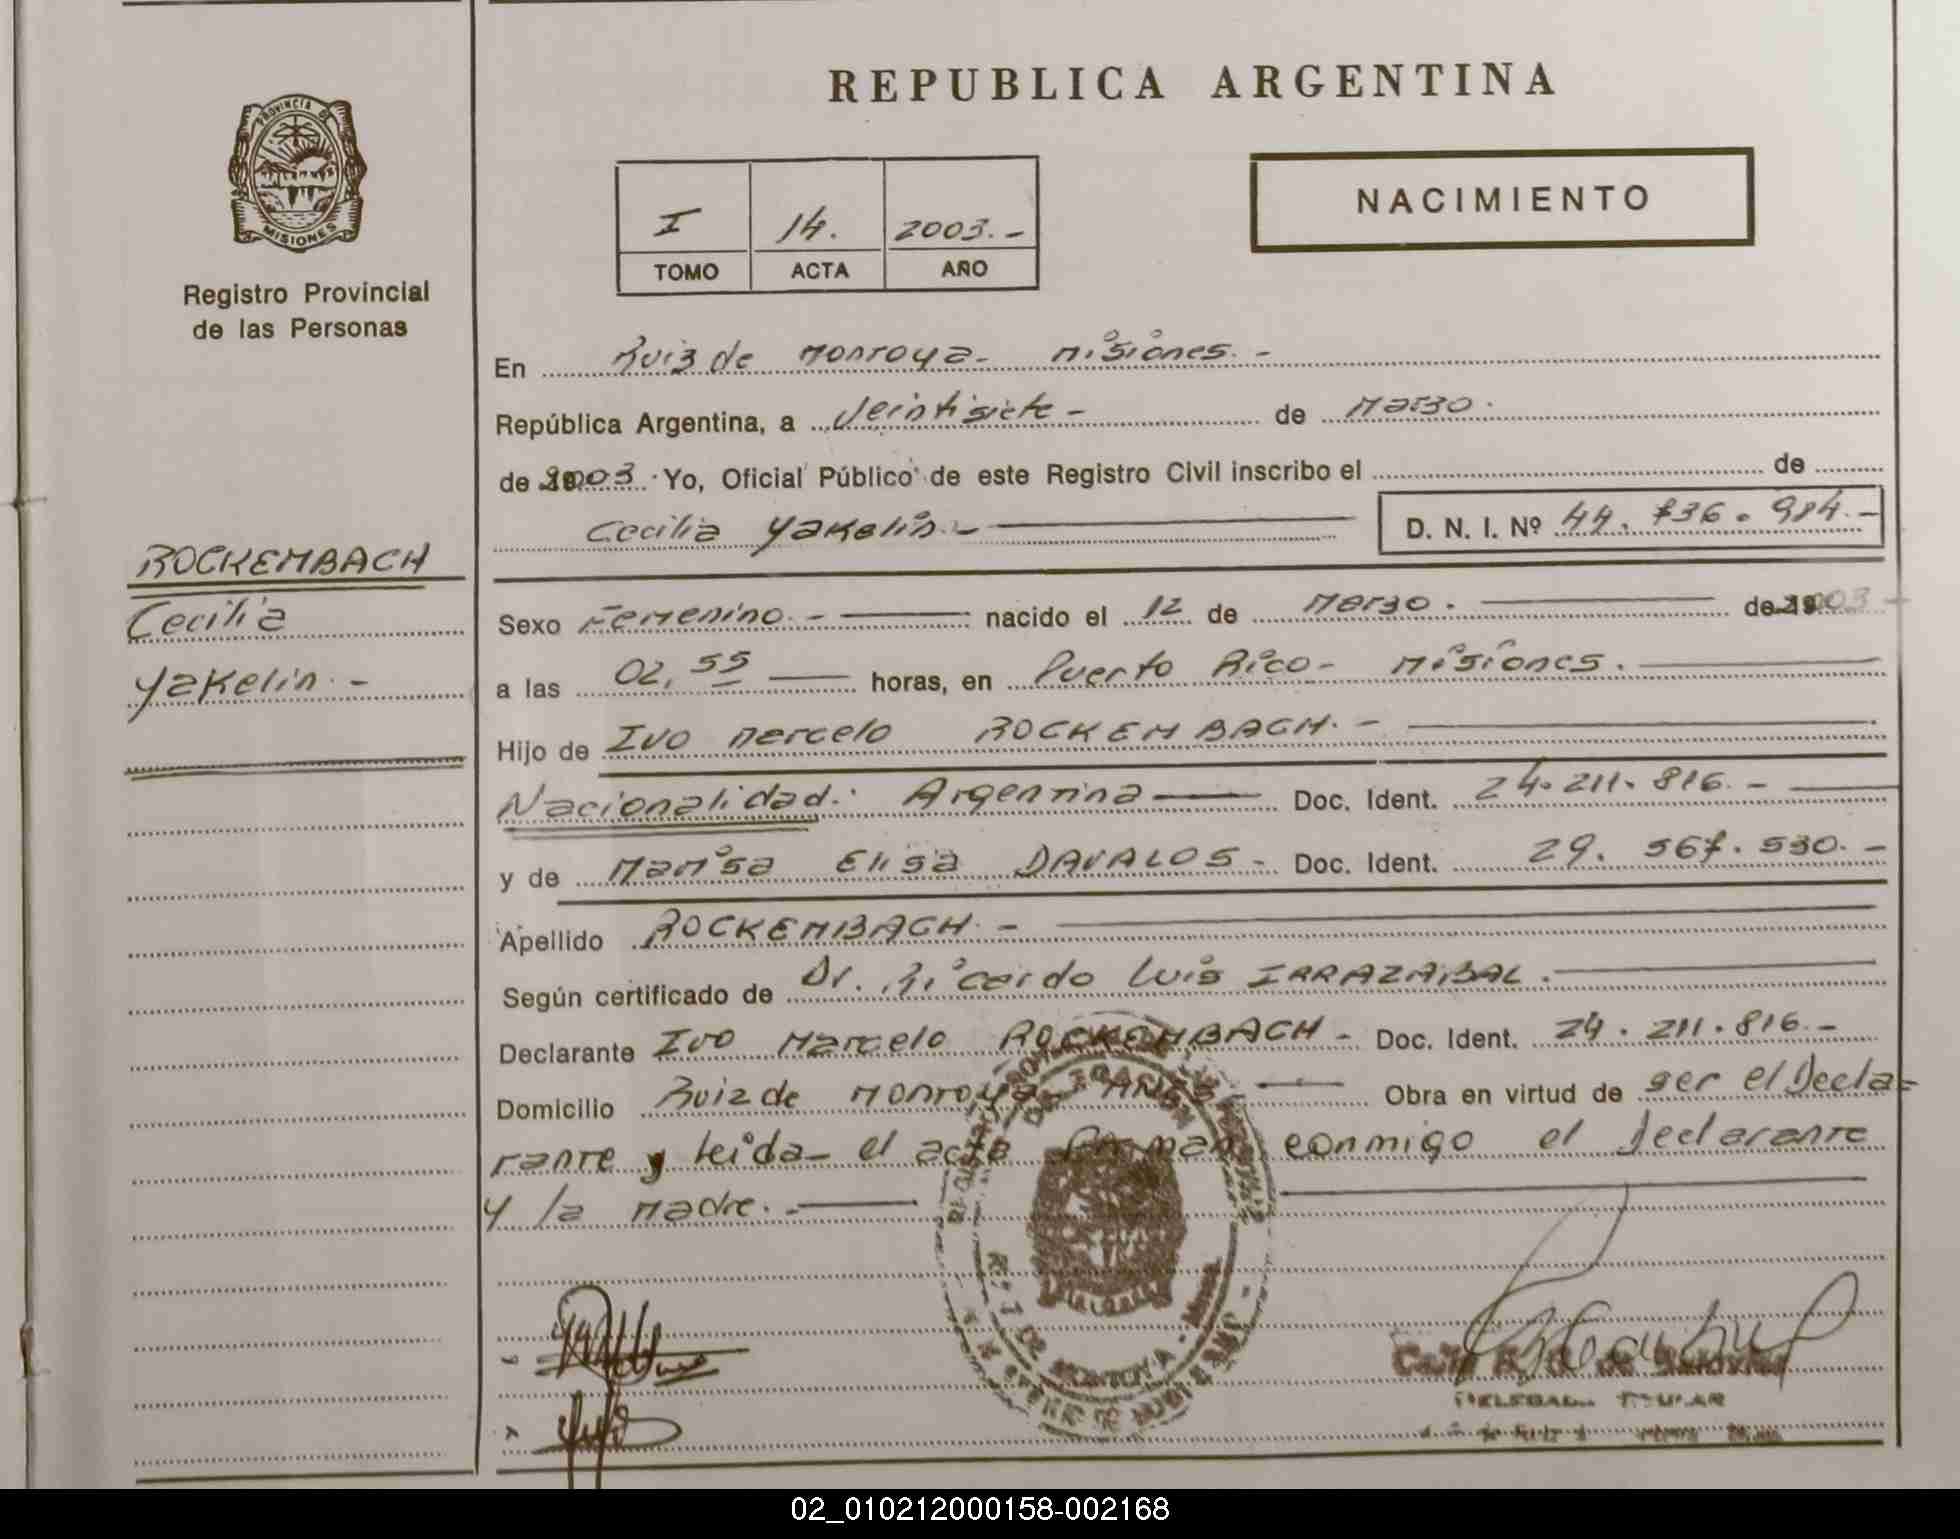 REPUBLICA ARGENTINA
PROVINCIA DE
MISIONES
Registro Provincial
de las Personas
I 14. 2003.-
TOMO ACTA AÑO
NACIMIENTO
ROCKEMBACH
Cecilia
Yakelin.-
En Ruiz de Montoya- Misiones.-
República Argentina, a Veintisiete- de Marzo.
de 2003. Yo, Oficial Público de este Registro Civil inscribo el de
Cecilia Yakelin.- D. N. I. Nº 44.736.984.-
Sexo Femenino.- nacido el 12 de Marzo. de 2003-
a las 02,55 horas, en Puerto Rico- Misiones.
Hijo de Ivo Marcelo ROCKEMBACH.-
Nacionalidad: Argentina Doc. Ident. 24.211.816.-
y de Marisa Elisa DAVALOS- Doc. Ident. 29.567.530.-
Apellido ROCKEMBACH.-
Según certificado de Dr. Ricardo Luis IRRAZABAL.
Declarante Ivo Marcelo ROCKEMBACH- Doc. Ident. 24.211.816.-
Domicilio Ruiz de Montoya Obra en virtud de ser el Decla-
rante y leida- el acta firman conmigo el Declarante
y la madre.-
DELEGADA TITULAR
02_010212000158-002168